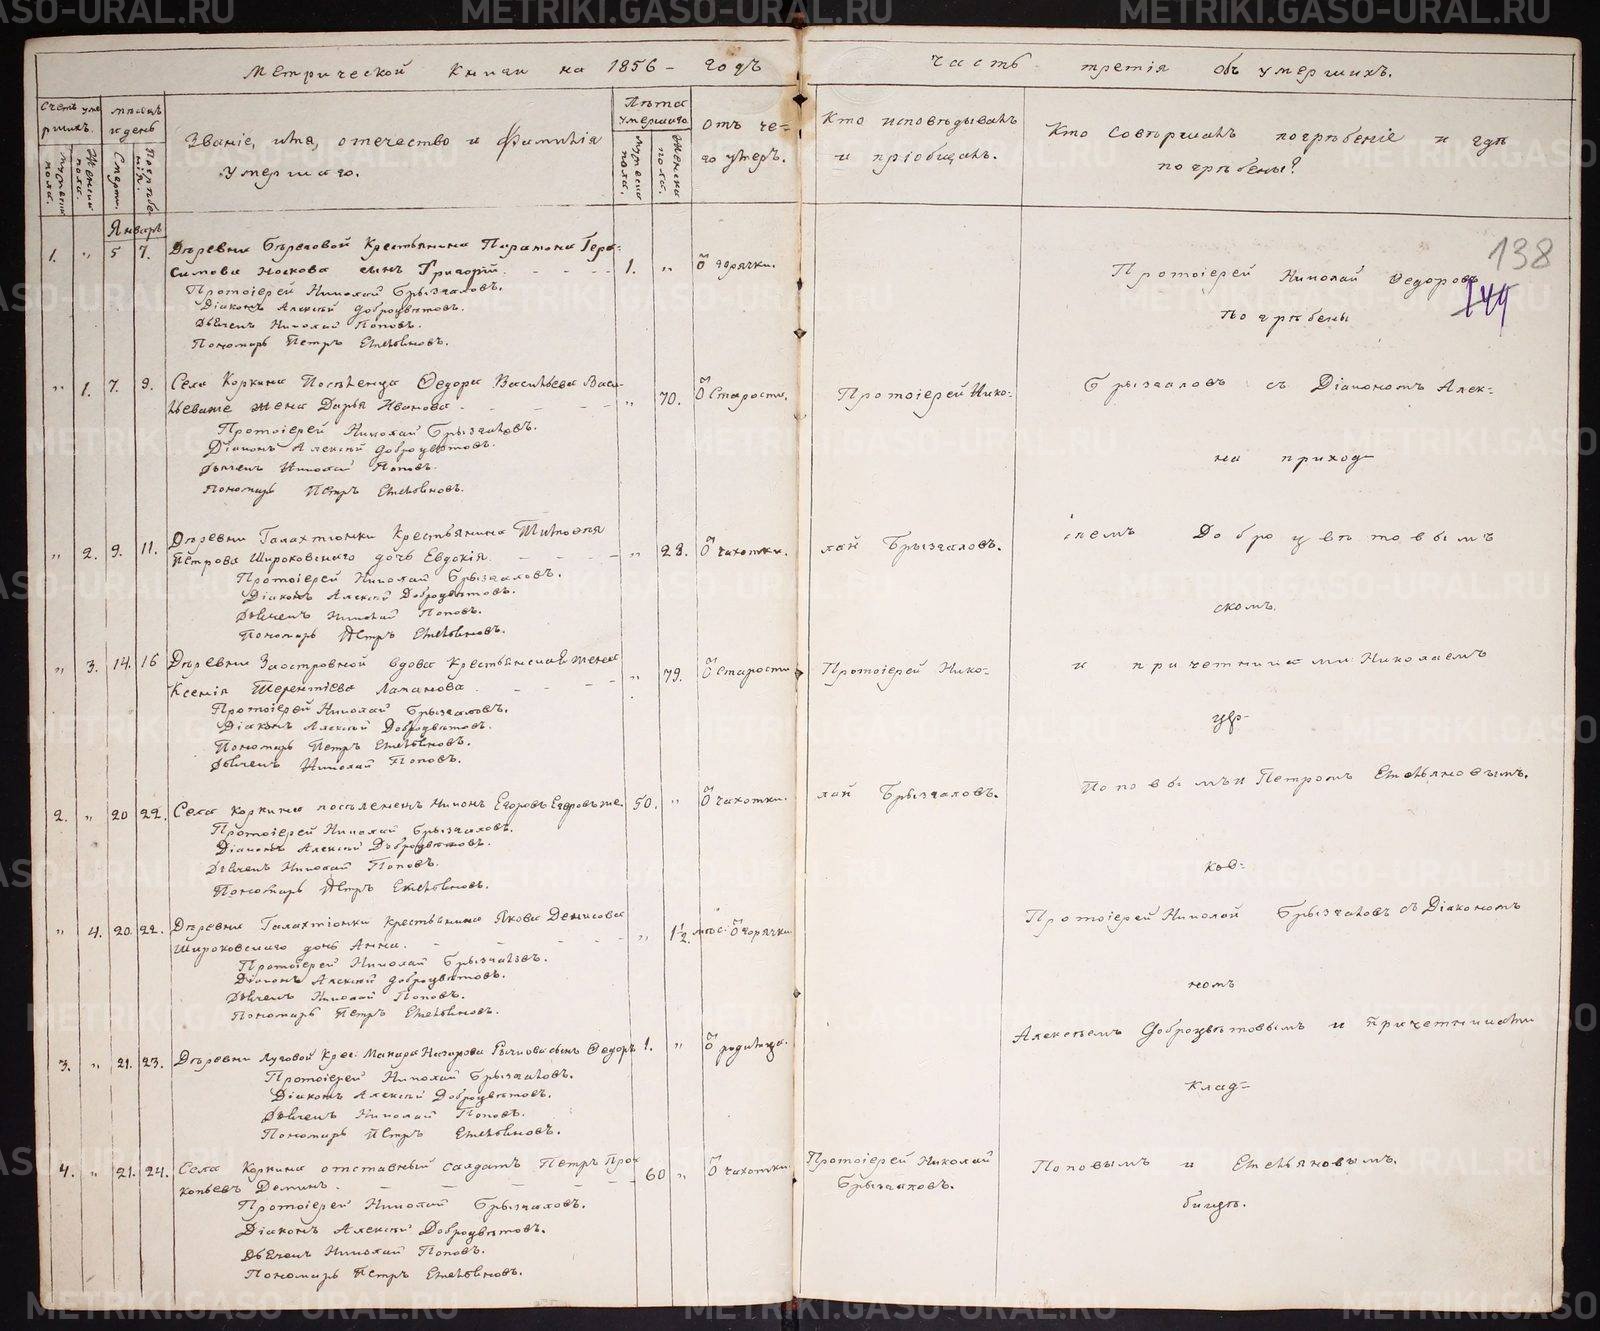 Метрической книги на 1856 - годъ
часть третія объ умершихъ.
Счетъ уме
ршихъ.
Мужеска
пола.
Женска
пола.
мѣсяцъ
и день
Смерти.
Погребе
нія.
Званіе, имя, отечество и фамилія
умершаго.
Лѣта
умершаго.
Мужеска
пола.
Женска
пола.
Отъ че-
го умеръ.
Кто исповѣдывалъ
и пріобщалъ.
Кто совершалъ погребеніе и гдѣ
погребены?
Январь
138
144
1. " 5 7. Деревни Береговой Крестьянина Паратона Гера-
симова Носкова сынъ Григорій. - - - - 1. " Ѿ горячки.
Протоіерей Николай Брызгаловъ.
Діаконъ Алексѣй Доброцвѣтовъ.
Дьячекъ Николай Поповъ.
Пономарь Петръ Емельяновъ.
Протоіерей Николай Ѳедоровъ
Погребены
" 1. 7. 9. Села Коркина Поселенца Ѳедора Васильева Васи-
льева же жена Дарья Иванова - - - - " 70. Ѿ Старости.
Протоіерей Николай Брызгаловъ.
Діаконъ Алексѣй Доброцвѣтовъ.
Дьячекъ Николай Поповъ.
Пономарь Петръ Емельяновъ.
Протоіерей Нико-
Брызгаловъ съ Діакономъ Алек-
на приход-
" 2. 9. 11. Деревни Галахтіонки Крестьянина Тимоѳея
Петрова Широковскаго дочь Евдокія. - - - - " 28. Ѿ чахотки.
Протоіерей Николай Брызгаловъ.
Діаконъ Алексѣй Доброцвѣтовъ.
Дьячекъ Николай Поповъ.
Пономарь Петръ Емельяновъ.
лай Брызгаловъ.
сѣемъ Доброцвѣтовымъ
скомъ.
" 3. 14. 16 Деревни Заостровной вдова Крестьянская жена
Ксенія Терентіева - - - - " 79. Ѿ Старости
Протоіерей Николай Брызгаловъ.
Діаконъ Алексѣй Доброцвѣтовъ.
Пономарь Петръ Емельяновъ.
Дьячекъ Николай Поповъ.
Протоіерей Нико-
и причетниками Николаемъ
цер-
2. " 20 22. Села Коркина поселенецъ Егоръ Егоровъ же. 50. " Ѿ чахотки.
Протоіерей Николай Брызгаловъ.
Діаконъ Алексѣй Доброцвѣтовъ.
Дьячекъ Николай Поповъ.
Пономарь Петръ Емельяновъ.
лай Брызгаловъ.
Поповымъ и Петромъ Емельяновымъ.
ков-
" 4. 20. 22. Деревни Галахтіонки крестьянина Якова Денисова
Широковскаго дочь Анна. - - - - " 1½ мѣс. Ѿ горячки
Протоіерей Николай Брызгаловъ.
Діаконъ Алексѣй Доброцвѣтовъ.
Дьячекъ Николай Поповъ.
Пономарь Петръ Емельяновъ.
Протоіерей Николай Брызгаловъ съ Діакономъ
номъ
3. " 21. 23. Деревни Луговой Крес. Макара Назарова сынъ Ѳедоръ 1. " Ѿ родимца.
Протоіерей Николай Брызгаловъ.
Діаконъ Алексѣй Доброцвѣтовъ.
Дьячекъ Николай Поповъ.
Пономарь Петръ Емельяновъ.
Алексѣемъ Доброцвѣтовымъ и причетниками
клад-
4. " 21. 24. Села Коркина отставный солдатъ Петръ Про-
копьевъ Деминъ. - - - - 60 " Ѿ чахотки
Протоіерей Николай Брызгаловъ.
Діаконъ Алексѣй Доброцвѣтовъ.
Дьячекъ Николай Поповъ.
Пономарь Петръ Емельяновъ.
Протоіерей Николай
Брызгаловъ.
Поповымъ и Емельяновымъ.
бищѣ.
METRIKI.GASO-URAL.RU